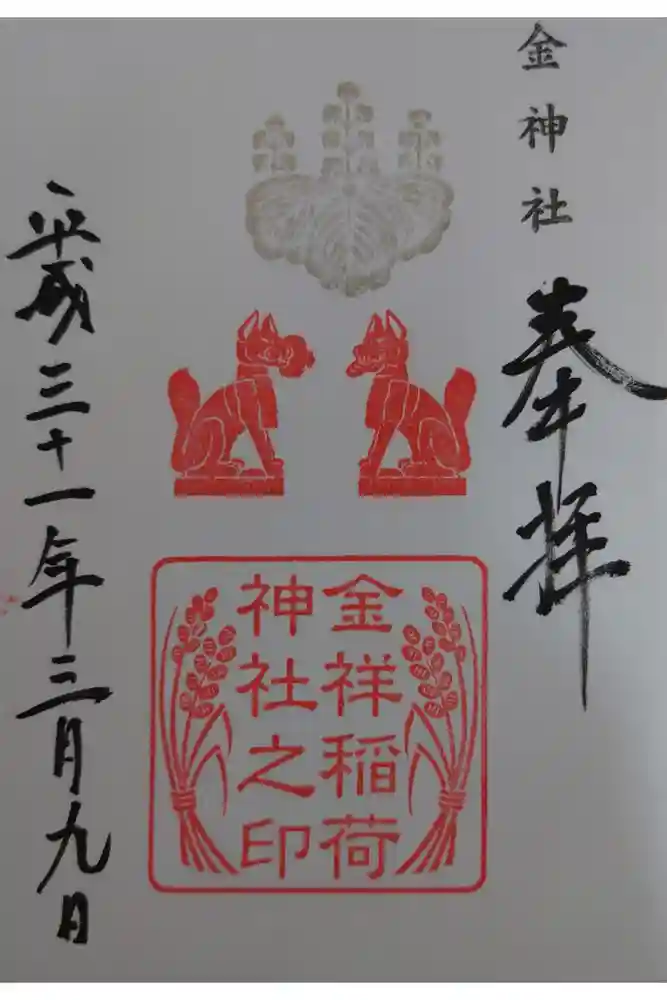 金神社
奉拝
金祥稲荷
神社之印
平成三十一年三月九日